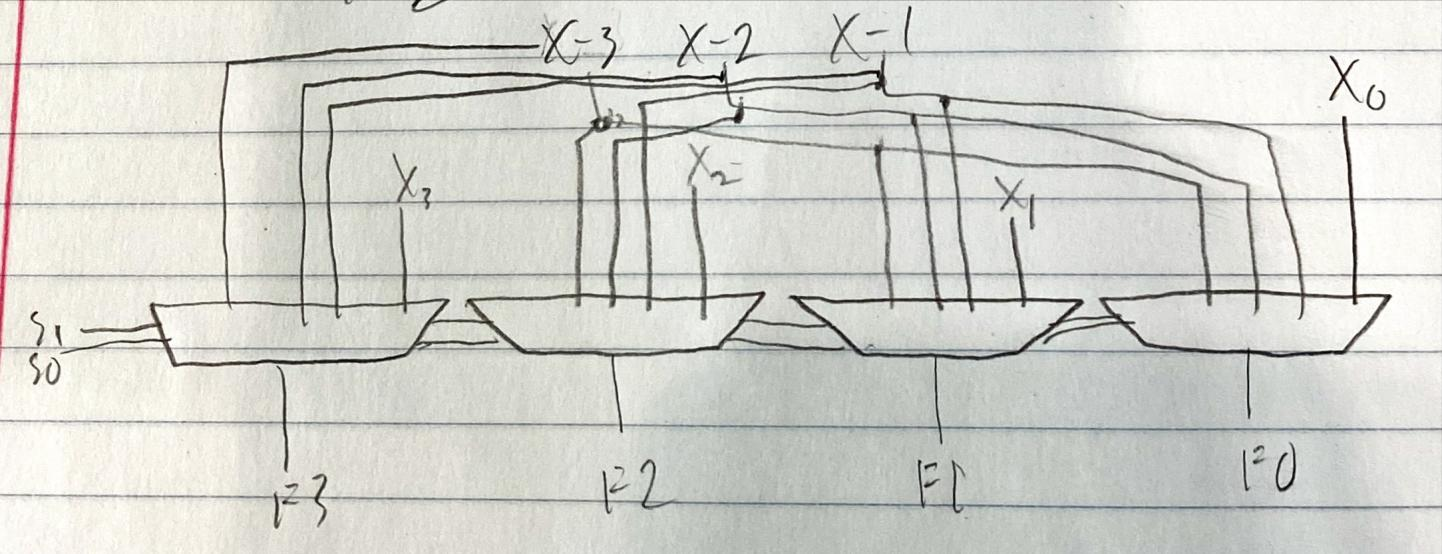 X-3 X-2 X-1
X0
X3 X2 X1
S1
S0
F3 F2 F1 F0